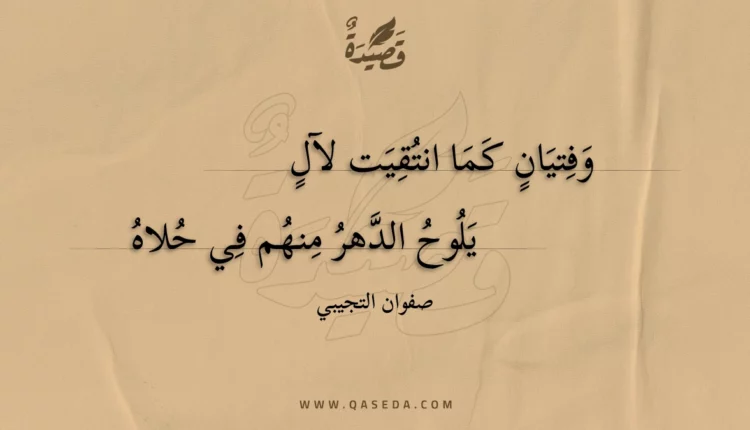 قَصِيدَةٌ
وَفِتيَانٍ كَمَا انتُقِيَت لآلٍ
يَلُوحُ الدَّهرُ مِنهُم فِي حُلاهُ
صفوان التجيبي
WWW.QASEDA.COM